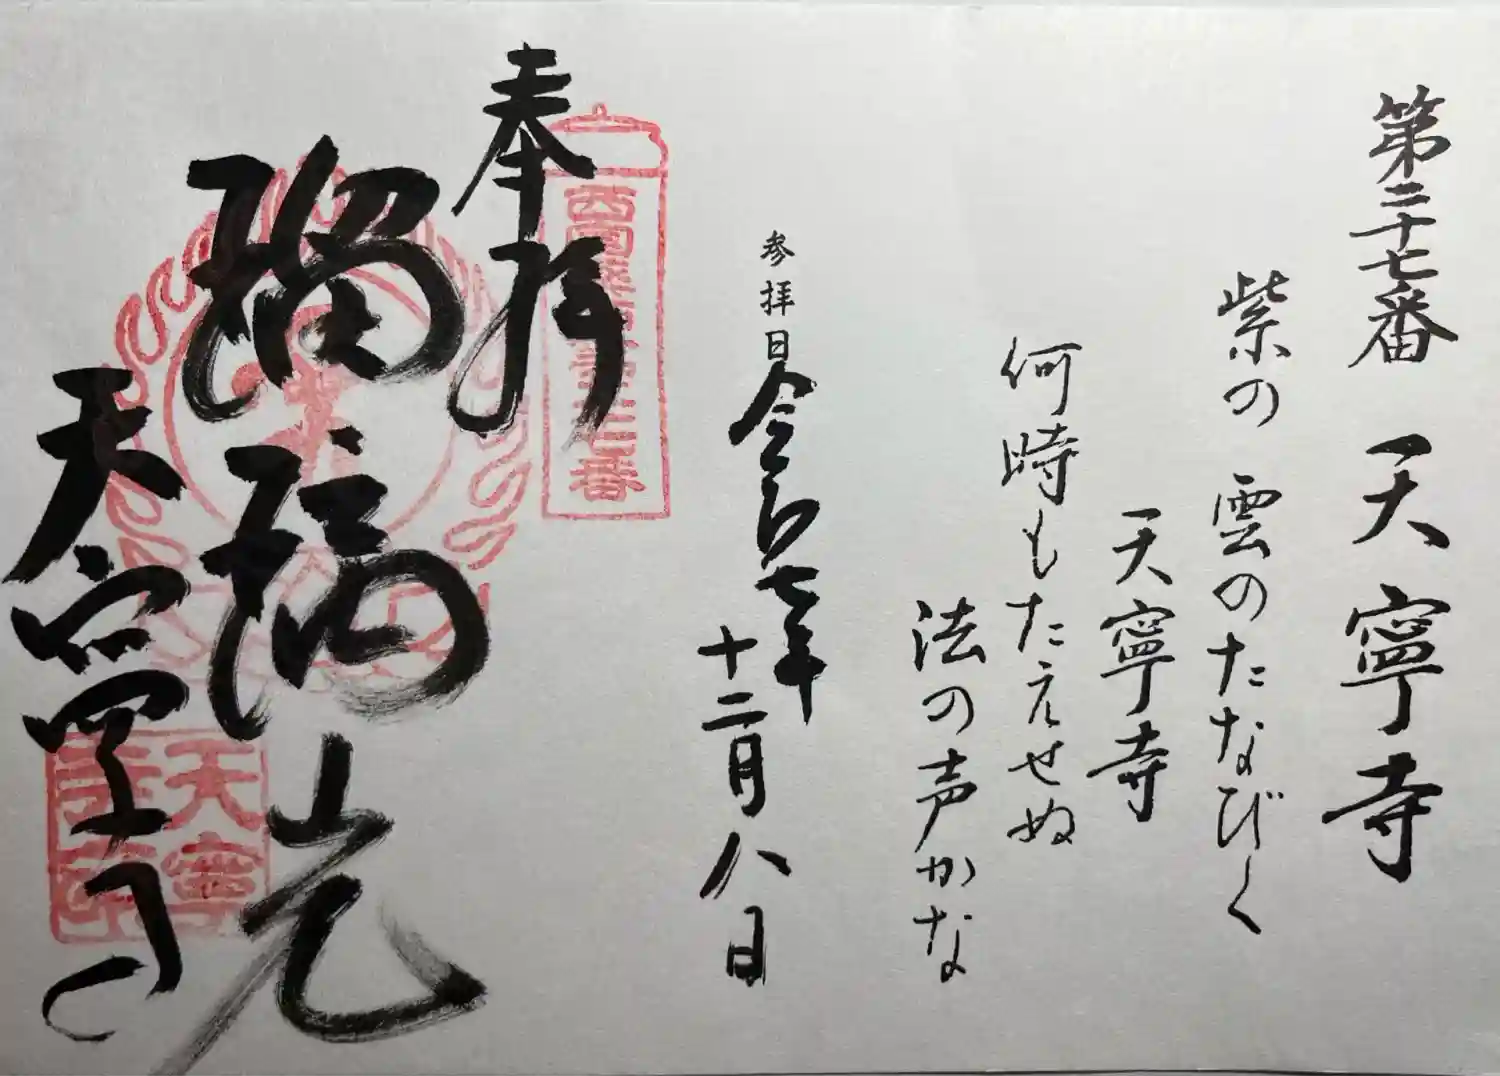 第二十七番 天寧寺
紫の雲のたなびく
天寧寺
何時もたえせぬ
法の声かな
参拝日 令和七年
十二月八日
奉拝
西国薬師第二十七番
瑠璃光
天寧寺
天寧
寺印